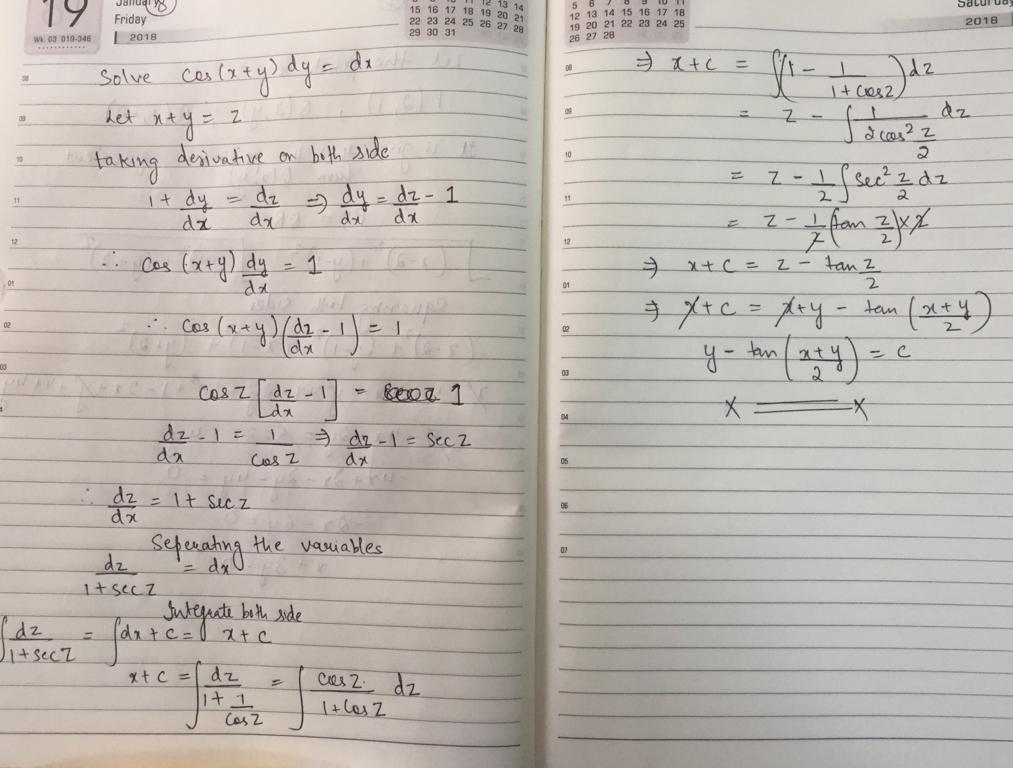 19
January
Friday
Wk 03 019-346
2018
15 16 17 18 19 20 21
22 23 24 25 26 27 28
29 30 31
08
Solve cos(x+y) dy = dx
09
Let x+y = z
10
taking derivative on both side
11
1 + dy/dx = dz/dx ⇒ dy/dx = dz/dx - 1
12
∴ cos (x+y) dy/dx = 1
01
02
∴ cos (x+y) (dz/dx - 1) = 1
03
cos z [dz/dx - 1] = 1
dz/dx - 1 = 1/cos z ⇒ dz/dx - 1 = sec z
∴ dz/dx = 1 + sec z
Seperating the variables
dz/1+sec z = dx
Integrate both side
∫ dz/1+sec z = ∫dx + c = x + c
x + c = ∫ dz/1 + 1/cos z = ∫ cos z/1+cos z dz
Saturday
2018
5 6 7 8 9 10 11
12 13 14 15 16 17 18
19 20 21 22 23 24 25
26 27 28
08
⇒ x+c = ∫(1 - 1/1+cos z) dz
09
= z - ∫ 1/2cos² z/2 dz
10
= z - 1/2 ∫ sec² z/2 dz
11
= z - 1/2 (tan z/2) x 2
12
⇒ x + c = z - tan z/2
01
⇒ x + c = x + y - tan (x+y/2)
02
y - tan (x+y/2) = c
03
x = x
04
05
06
07